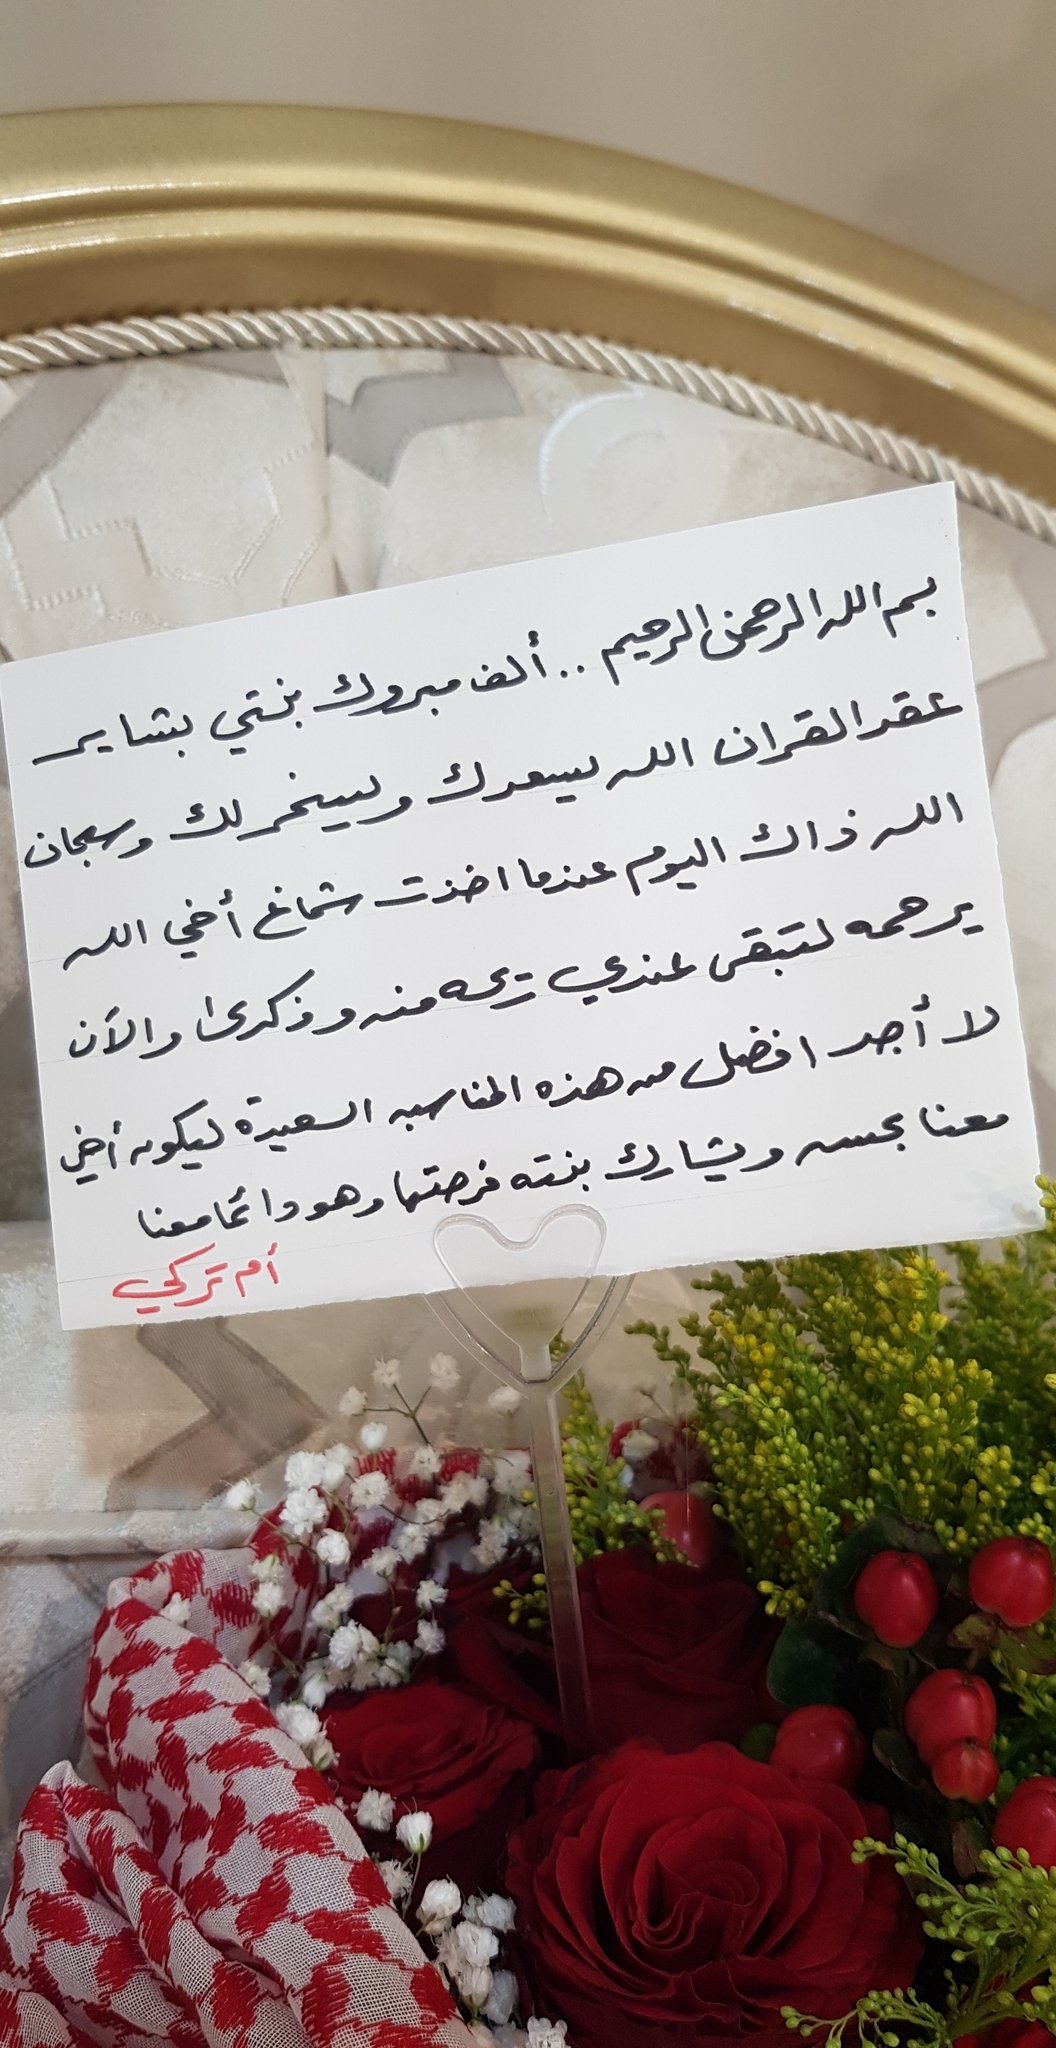 بسم الله الرحمن الرحيم .. ألف مبروك بنتي بشاير
عقد القران الله يسعدك ويسخر لك وسبحان
الله ذاك اليوم عندما اخذت شماغ أخي الله
يرحمه لتبقى عندي ريحه منه وذكرى والآن
لا أجد افضل من هذه المناسبه السعيدة ليكون أخي
معنا بحسه ويشارك بنته فرحتها وهو دائما معنا
أم تركي